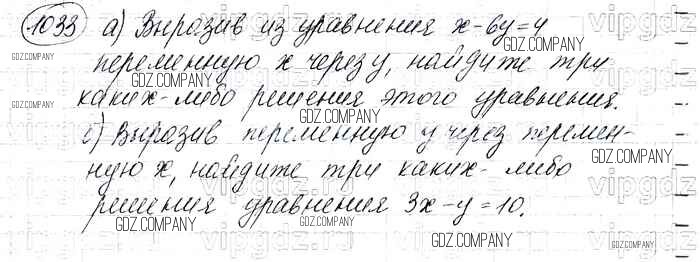 1033 а) Выразив из уравнения x-6y=4
переменную x через y, найдите три
каких-либо решения этого уравнения.
б) Выразив переменную y через перемен-
ную x, найдите три каких-либо
решения уравнения 3x-y=10.
GDZ.COMPANY
GDZ.COMPANY
GDZ.COMPANY
GDZ.COMPANY
GDZ.COMPANY
GDZ.COMPANY
GDZ.COMPANY
GDZ.COMPANY
GDZ.COMPANY
GDZ.COMPANY